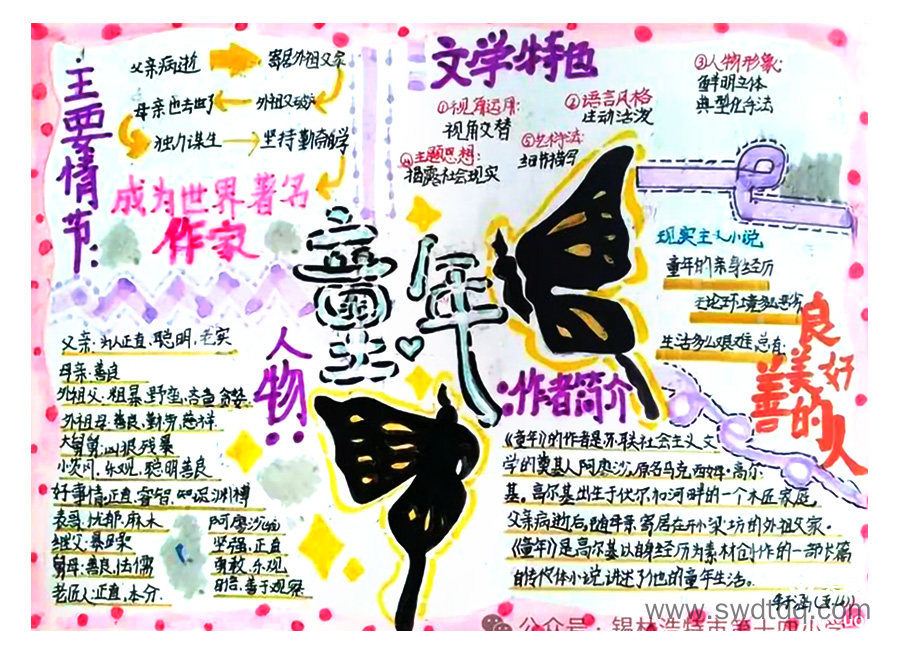 主要情节:
父亲病逝 寄居外祖父家
母亲也去世了 外祖父破产
独力谋生 坚持勤奋自学
成为世界著名
作家
文学特色
①视角运用:
视角交替
②语言风格
生动活泼
③人物形象:
鲜明立体
典型化手法
④主题思想:
揭露社会现实
⑤艺术手法:
细节描写
童年
现实主义小说
童年的亲身经历
无论环境多么恶劣
生活多么艰难,总有:
良好
善美的人
人物:
父亲:为人正直、聪明、老实
母亲:善良
外祖父:粗暴、野蛮、吝啬、贪婪
外祖母:善良、勤劳、慈祥
大舅舅:凶狠残暴
小茨冈:乐观、聪明善良
好事情:正直、睿智、知识渊博
表哥:忧郁、麻木
继父:暴躁
舅母:善良、怯懦
老匠人:正直、本分.
阿廖沙:
坚强、正直
勇敢、乐观
自信、善于观察
:作者简介
《童年》的作者是苏联社会主义文
学的奠基人阿廖沙,原名马克西姆·高尔
基。高尔基出生于伏尔加河畔的一个木匠家庭。
父亲病逝后,随母亲寄居在开染坊的外祖父家.
《童年》是高尔基以自身经历为素材创作的一部长篇
自传体小说,讲述了他的童年生活。
www.swdtdq.com
公众号·锡林浩特市第十四小学